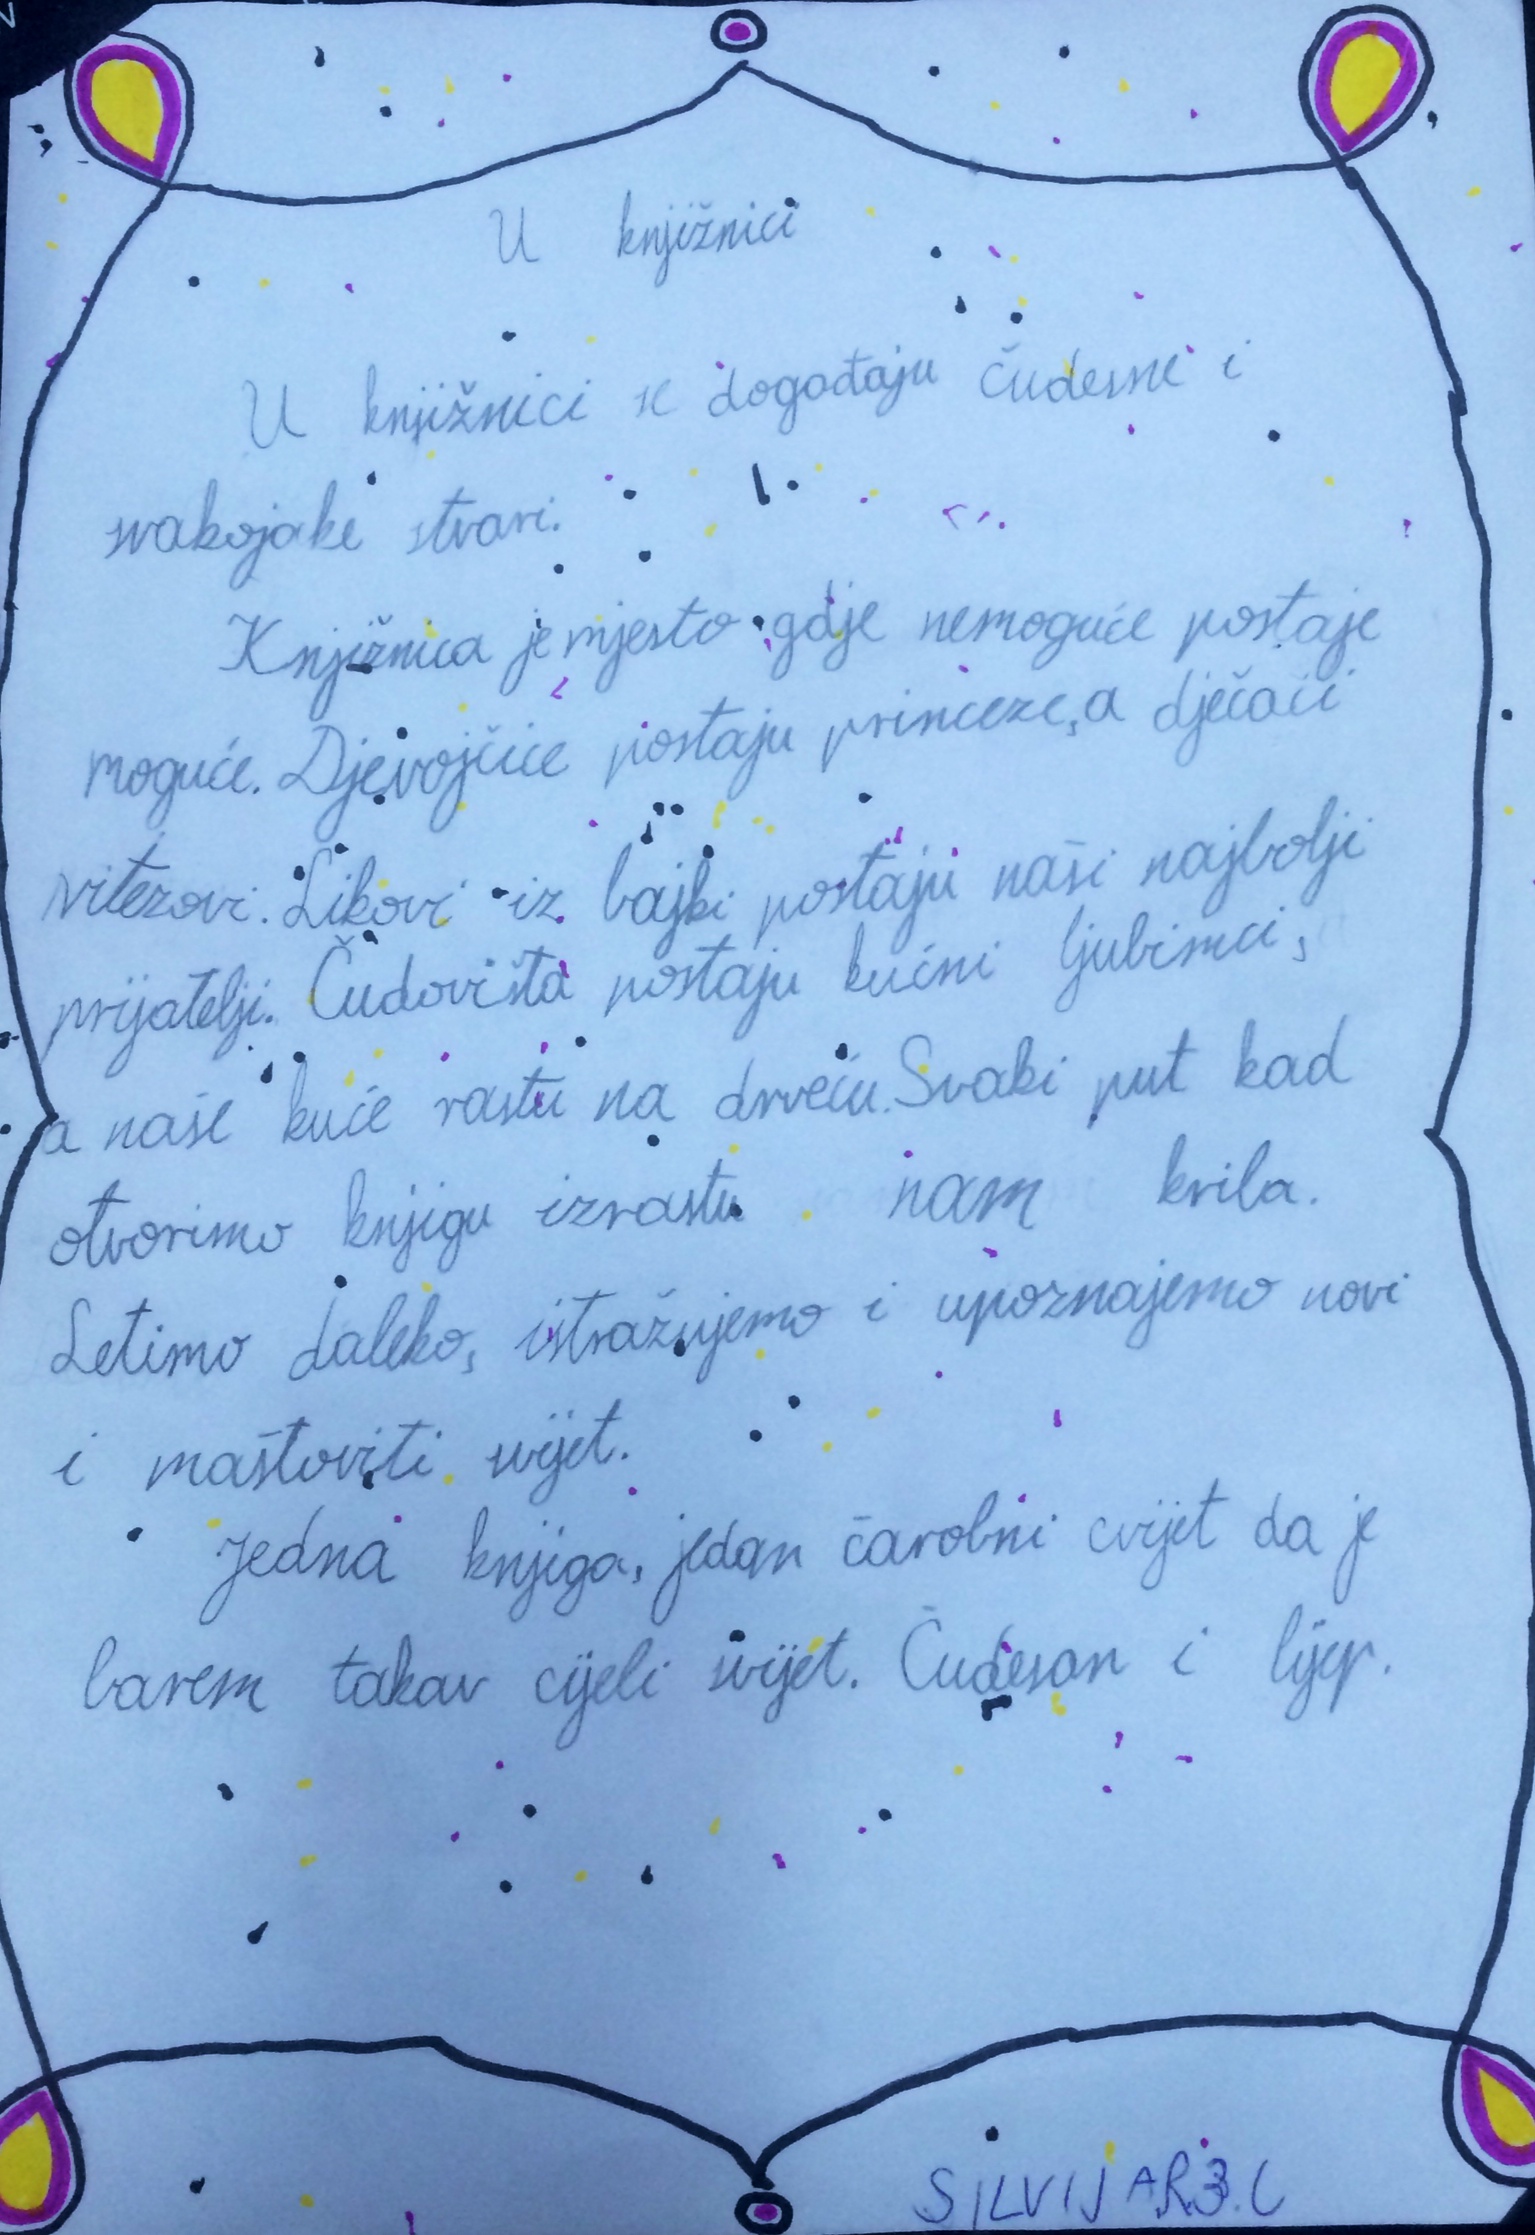 U knjižnici
U knjižnici se događaju čudesne i
svakojake stvari.
Knjižnica je mjesto gdje nemoguće postaje
moguće. Djevojčice postaju princeze, a dječaci
vitezovi. Likovi iz bajki postaju naši najbolji
prijatelji. Čudovišta postaju kućni ljubimci,
a naše kuće rastu na drveću. Svaki put kad
otvorimo knjigu izrastu nam krila.
Letimo daleko, istražujemo i upoznajemo novi
i maštoviti svijet.
Jedna knjiga, jedan čarobni cvijet da je
barem takav cijeli svijet. Čudesan i lijep.
SILVIJA R. 3. C